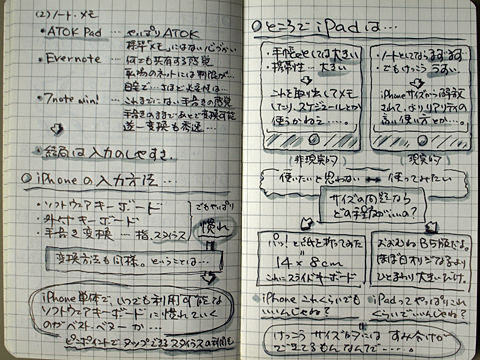 (2)ノート・メモ
・ATOK Pad … やっぱりATOK
標準"メモ"にはない
・Evernote … 何でも共有する感覚
・7notes win! … これまでにない手書きの感覚
手書きのままであとで変換可能
逐一変換も秀逸…
・結局は入力のしやすさ
○iPhoneの入力方法…
・ソフトウェアキーボード
・外付キーボード
・手書き変換 … 指、スタイラス
でもやっぱり
慣れ
変換方法も同様。ということは…
iPhone単体で、いつでも利用可能な
ソフトウェアキーボードに慣れていく
のがベストベターか…
ピンポイントでタップできるスタイラスの利用も
○ところで iPad は…
・手帳としては大きい
・携帯性… 大きい
これを取り出してメモ
したり、スケジュールとか
使うかなぁ…。
(非現実的)
・ノートとしてならまずまず
でもけっこううすい。
iPhoneサイズから解放
されて、よりリアリティの
高い使い方とか…。
(現実的)
使いたいと思わない ↔ 使ってみたい
サイズの問題なら
どの程度がいいの?
パッ!と紙を折ってみた
14×8cm
これにスライドキーボード
おおむねB5版だよ。
ほぼ自オリジナルより
ひとまわり大きいだけ。
iPhone これくらいでも
いいんじゃね?
iPadってやっぱりこれ
ぐらいでいいんじゃね?
けっこうサイズ的にはすみ分けが
できてるもんなんで……。